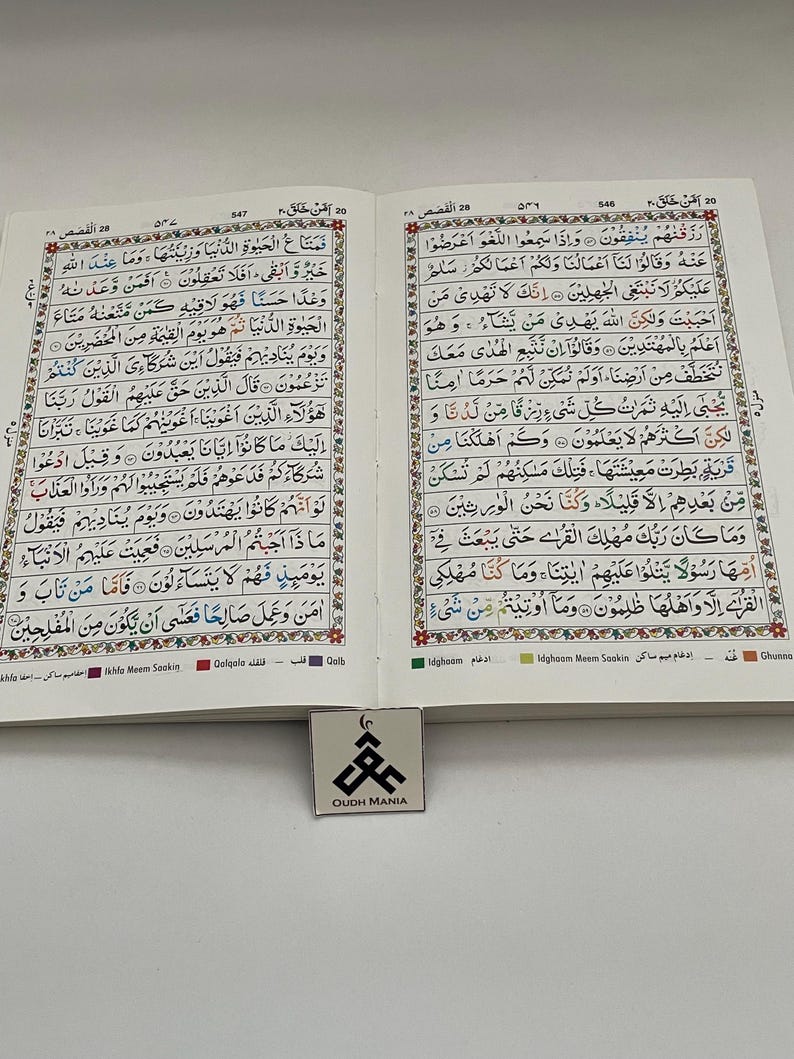 20 اَمَّنْ خَلَقَ ۲۰ 546 ۵۴۶ 28 اَلْقَصَص ۲۸
رَزَقْنٰهُمْ يُنْفِقُوْنَ ۝۵۴ وَاِذَا سَمِعُوا اللَّغْوَ اَعْرَضُوْا
عَنْهُ وَقَالُوْا لَنَآ اَعْمَالُنَا وَلَكُمْ اَعْمَالُكُمْ ز سَلٰمٌ
عَلَيْكُمْ ز لَا نَبْتَغِى الْجٰهِلِيْنَ ۝۵۵ اِنَّكَ لَا تَهْدِىْ مَنْ
اَحْبَبْتَ وَلٰكِنَّ اللّٰهَ يَهْدِىْ مَنْ يَّشَآءُ ج وَهُوَ
اَعْلَمُ بِالْمُهْتَدِيْنَ ۝۵۶ وَقَالُوْٓا اِنْ نَّتَّبِعِ الْهُدٰى مَعَكَ
نُتَخَطَّفْ مِنْ اَرْضِنَا ط اَوَلَمْ نُمَكِّنْ لَّهُمْ حَرَمًا اٰمِنًا
يُّجْبٰٓى اِلَيْهِ ثَمَرٰتُ كُلِّ شَىْءٍ رِّزْقًا مِّنْ لَّدُنَّا وَ
لٰكِنَّ اَكْثَرَهُمْ لَا يَعْلَمُوْنَ ۝۵۷ وَكَمْ اَهْلَكْنَا مِنْ
قَرْيَةٍۢ بَطِرَتْ مَعِيْشَتَهَا ج فَتِلْكَ مَسٰكِنُهُمْ لَمْ تُسْكَنْ
مِّنْۢ بَعْدِهِمْ اِلَّا قَلِيْلًا ط وَكُنَّا نَحْنُ الْوٰرِثِيْنَ ۝۵۸
وَمَا كَانَ رَبُّكَ مُهْلِكَ الْقُرٰى حَتّٰى يَبْعَثَ فِىْٓ
اُمِّهَا رَسُوْلًا يَّتْلُوْا عَلَيْهِمْ اٰيٰتِنَا ج وَمَا كُنَّا مُهْلِكِى
الْقُرٰٓى اِلَّا وَاَهْلُهَا ظٰلِمُوْنَ ۝۵۹ وَمَآ اُوْتِيْتُمْ مِّنْ شَىْءٍ
Idghaam ادغام Idghaam Meem Saakin ادغام میم ساکن — غُنّه Ghunna
20 اَمَّنْ خَلَقَ ۲۰ 547 ۵۴۷ 28 اَلْقَصَص ۲۸
فَمَتَاعُ الْحَيٰوةِ الدُّنْيَا وَزِيْنَتُهَا ج وَمَا عِنْدَ اللّٰهِ
خَيْرٌ وَّاَبْقٰى ط اَفَلَا تَعْقِلُوْنَ ۝۶۰ اَفَمَنْ وَّعَدْنٰهُ
وَعْدًا حَسَنًا فَهُوَ لَاقِيْهِ كَمَنْ مَّتَّعْنٰهُ مَتَاعَ
الْحَيٰوةِ الدُّنْيَا ثُمَّ هُوَ يَوْمَ الْقِيٰمَةِ مِنَ الْمُحْضَرِيْنَ ۝۶۱
وَيَوْمَ يُنَادِيْهِمْ فَيَقُوْلُ اَيْنَ شُرَكَآءِىَ الَّذِيْنَ كُنْتُمْ
تَزْعُمُوْنَ ۝۶۲ قَالَ الَّذِيْنَ حَقَّ عَلَيْهِمُ الْقَوْلُ رَبَّنَا
هٰٓؤُلَآءِ الَّذِيْنَ اَغْوَيْنَا ج اَغْوَيْنٰهُمْ كَمَا غَوَيْنَا ج تَبَرَّاْنَآ
اِلَيْكَ ز مَا كَانُوْٓا اِيَّانَا يَعْبُدُوْنَ ۝۶۳ وَقِيْلَ ادْعُوْا
شُرَكَآءَكُمْ فَدَعَوْهُمْ فَلَمْ يَسْتَجِيْبُوْا لَهُمْ وَرَاَوُا الْعَذَابَ ج
لَوْ اَنَّهُمْ كَانُوْا يَهْتَدُوْنَ ۝۶۴ وَيَوْمَ يُنَادِيْهِمْ فَيَقُوْلُ
مَاذَآ اَجَبْتُمُ الْمُرْسَلِيْنَ ۝۶۵ فَعَمِيَتْ عَلَيْهِمُ الْاَنْۢبَآءُ
يَوْمَئِذٍ فَهُمْ لَا يَتَسَآءَلُوْنَ ۝۶۶ فَاَمَّا مَنْ تَابَ وَ
اٰمَنَ وَعَمِلَ صَالِحًا فَعَسٰٓى اَنْ يَّكُوْنَ مِنَ الْمُفْلِحِيْنَ ۝۶۷
khfa اخفا — اخفامیم ساکن Ikhfa Meem Saakin Qalqala قلقله — قلب Qalb
OUDH MANIA